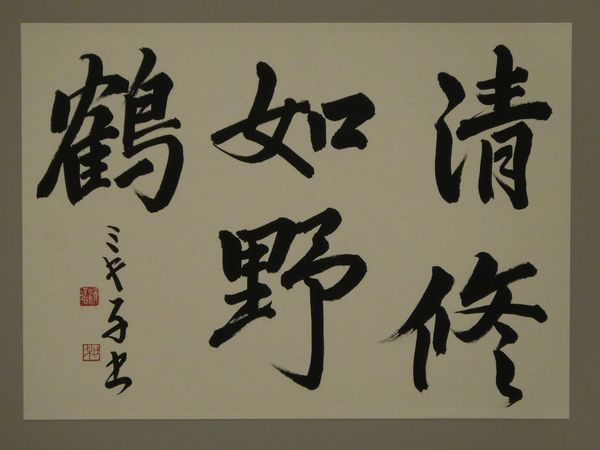 清修
如野
鶴
ミヤ子書